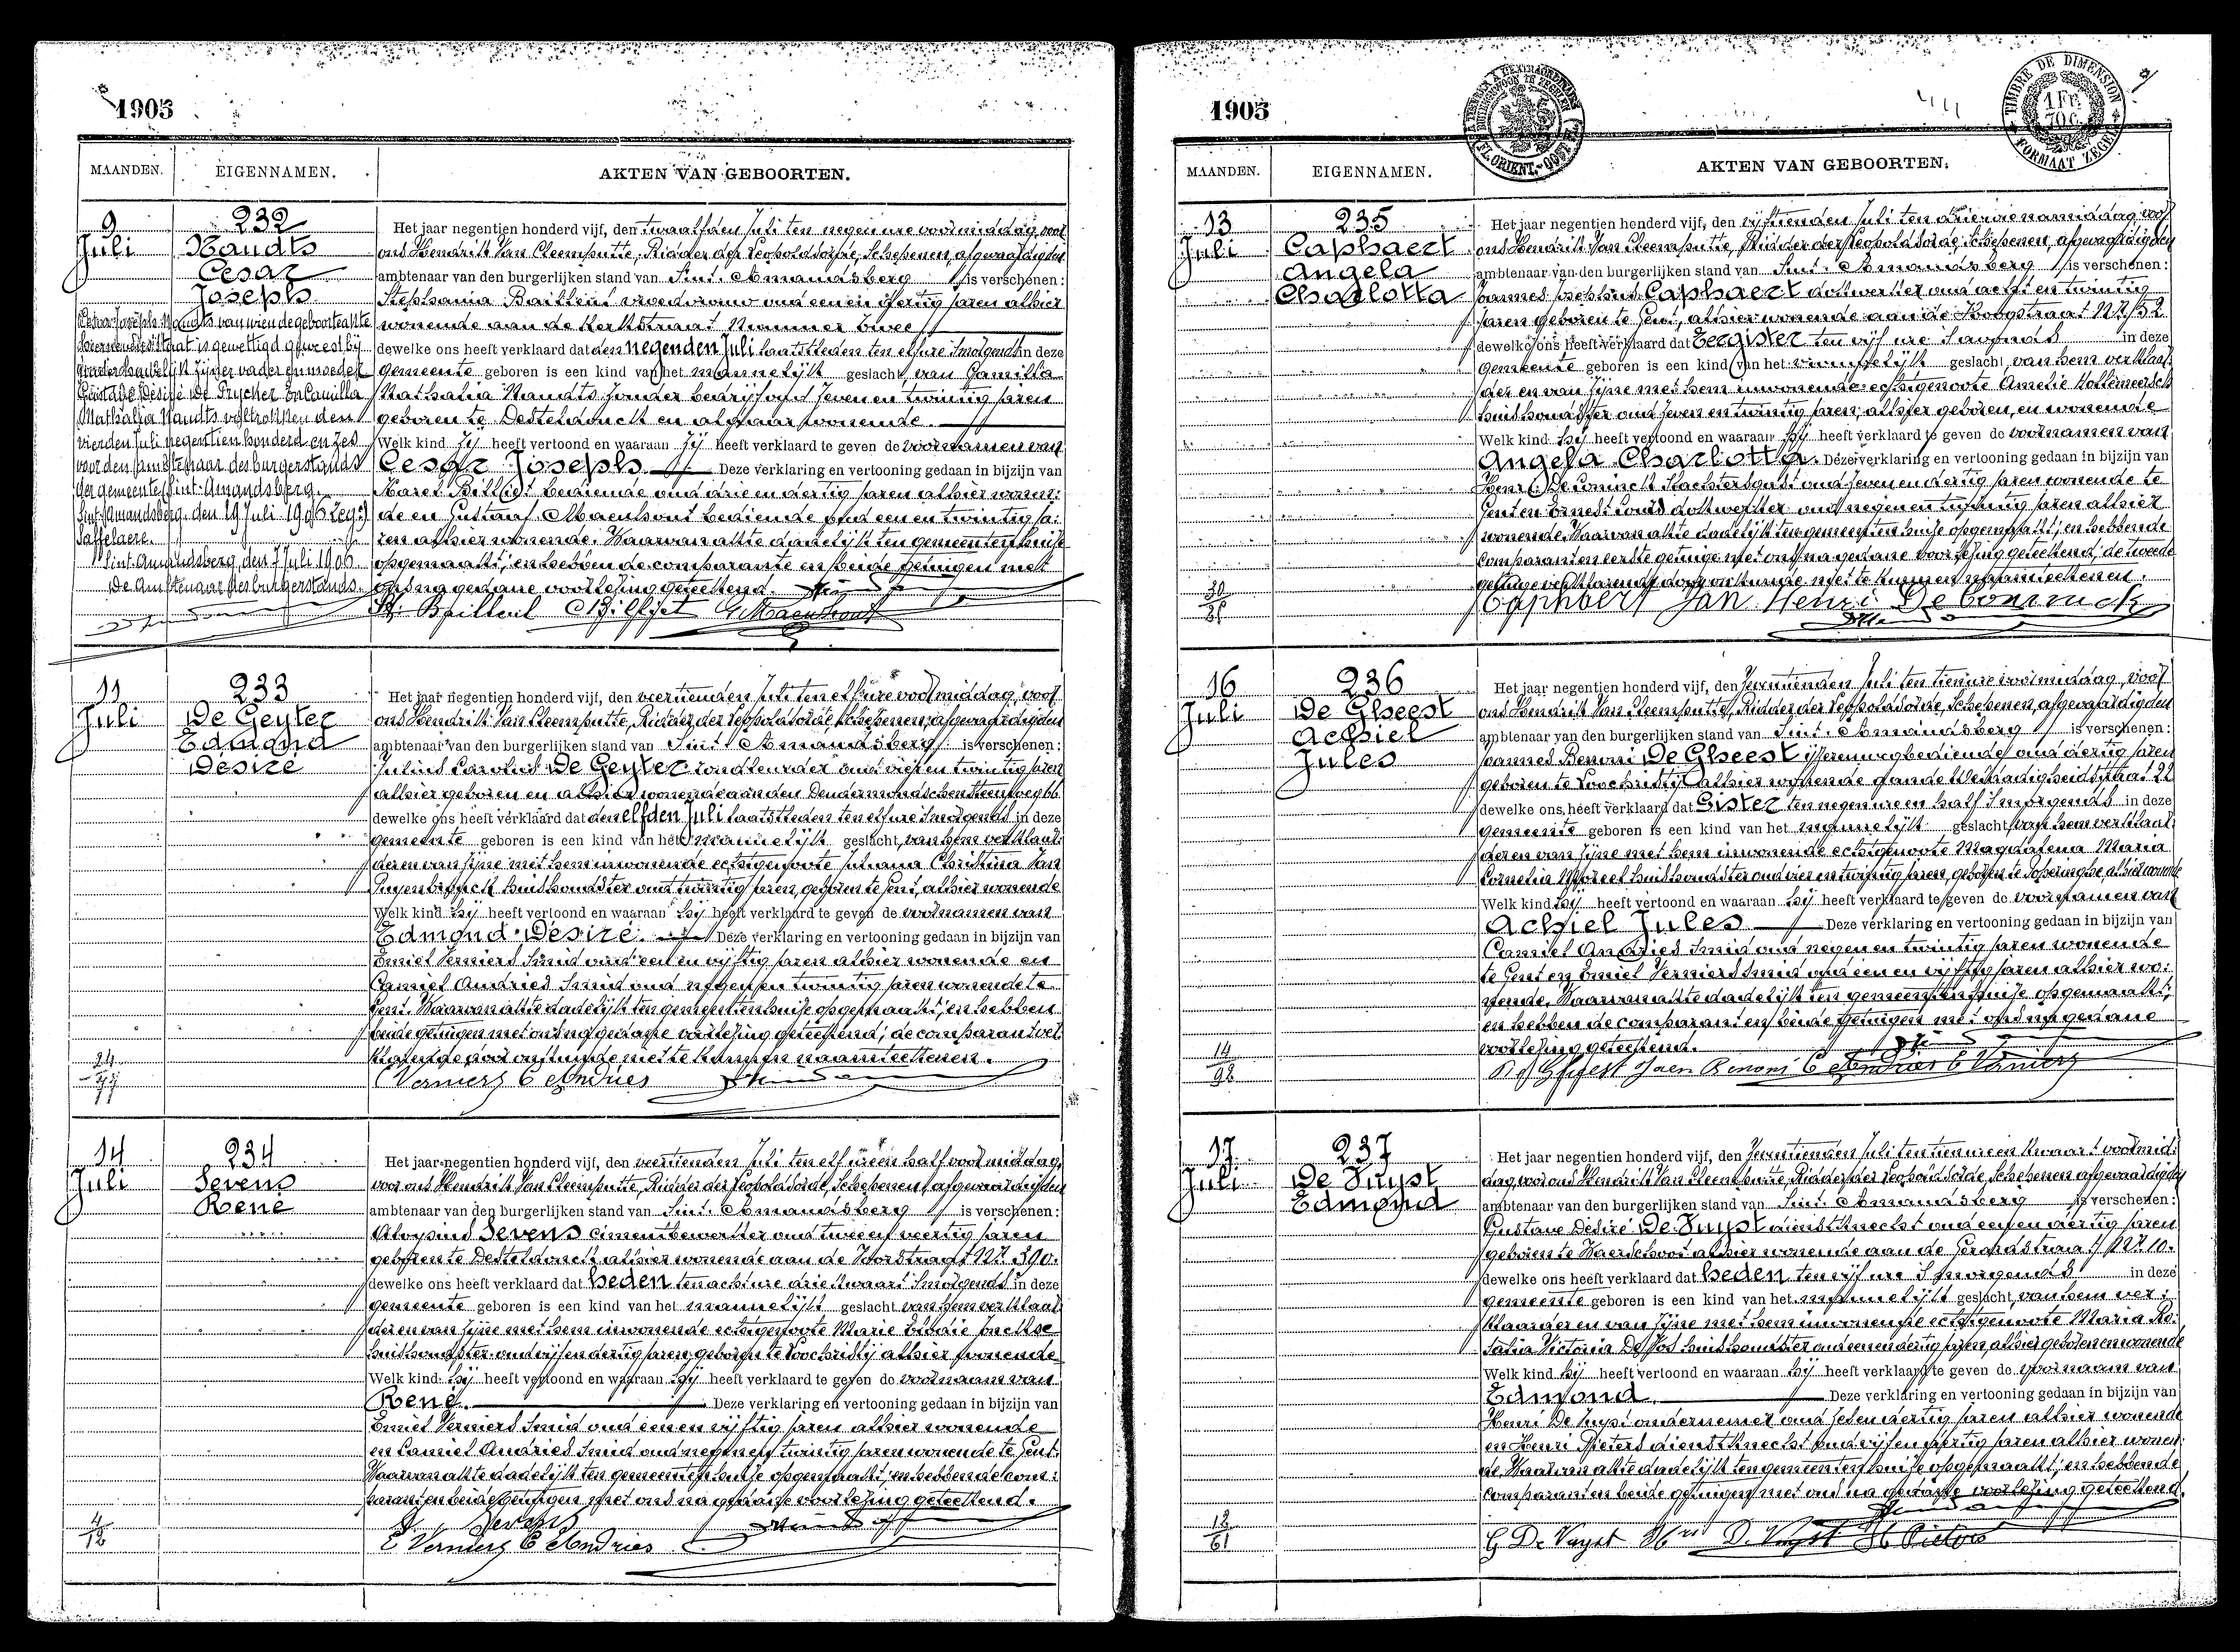 1905
MAANDEN. EIGENNAMEN. AKTEN VAN GEBOORTEN.
9 Juli
232
Naudts
Cesar
Joseph
Het jaar negentien honderd vijf, den twaalfden Juli ten negen ure voormiddag, voor
ons Hendrik Van Cleemputte, Ridder der Leopoldsorde, Schepenen, afgevaardigden
ambtenaar van den burgerlijken stand van Sint-Amandsberg is verschenen:
Stephania Bailleul vroedvrouw oud een en veertig jaren alhier
wonende aan de Kerkstraat Nummer twee
dewelke ons heeft verklaard dat den negenden Juli laatstleden ten elf ure 's morgends in deze
gemeente geboren is een kind van het mannelijk geslacht, van Camilla
Mathalia Naudts zonder bedrijf oud zeven en twintig jaren
geboren te Desteldonck en aldaar wonende.
Welk kind zij heeft vertoond en waaraan zij heeft verklaard te geven de voornamen van
Cesar Joseph Deze verklaring en vertooning gedaan in bijzijn van
Karel Billiet bediende oud drie en dertig jaren alhier wonen:
de en Gustaaf Maenhout bediende oud een en twintig ja:
ren alhier wonende. Waarvan akte dadelijk ten gemeentenhuize
opgemaakt; en hebben de comparante en beide getuigen met
ons na gedane voorlezing geteekend.
St. Bailleul C Billiet G Maenhout
Cesar Joseph Naudts van wien de geboorteakte
hiernevens staat is gewettigd geweest bij
Désiré De Prycker en Camilla
Mathalia Naudts voltrokken den
vierden Juli negentien honderd en zes
voor den ambtenaar des burgerstands
der gemeente Sint-Amandsberg.
Sint-Amandsberg, den 19 Juli 1906
Saffelaere.
Sint-Amandsberg den 7 Juli 1906
De Ambtenaar des burgerstands.
11 Juli
233
De Geyter
Edmond
Désiré
Het jaar negentien honderd vijf, den veertienden Juli ten elf ure voormiddag, voor
ons Hendrik Van Cleemputte, Ridder der Leopoldsorde, Schepenen, afgevaardigden
ambtenaar van den burgerlijken stand van Sint-Amandsberg is verschenen:
Julius Carolus De Geyter oud vier en twintig jaren
alhier geboren en alhier wonende aan den Dendermondschen steenweg 66
dewelke ons heeft verklaard dat den elfden Juli laatstleden ten elf ure 's morgends in deze
gemeente geboren is een kind van het mannelijk geslacht, van hem verklaar:
der en van zijne met hem inwonende echtgenoote Juliana Christina Van
Puyenbrouck huishoudster oud twintig jaren, geboren te Gent, alhier wonende
Welk kind hij heeft vertoond en waaraan hij heeft verklaard te geven de voornamen van
Edmond Désiré. Deze verklaring en vertooning gedaan in bijzijn van
Emiel Verniers smid oud een en vijftig jaren alhier wonende en
Camiel Andries smid oud negen en twintig jaren wonende te
Gent. Waarvan akte dadelijk ten gemeentenhuize opgemaakt; en hebben
beide getuigen met ons na gedane voorlezing geteekend; de comparant ver
klarende door onkunde niet te kunnen naamteekenen.
E Verniers C Andries
24
14 Juli
234
Sevens
René
Het jaar negentien honderd vijf, den veertienden Juli ten elf ure en half voormiddag,
voor ons Hendrik Van Cleemputte, Ridder der Leopoldsorde, Schepenen, afgevaardigden
ambtenaar van den burgerlijken stand van Sint-Amandsberg is verschenen:
Aloysius Sevens cimentbewerker oud twee en veertig jaren
geboren te Desteldonck alhier wonende aan de Voordstraat Nr. 390.
dewelke ons heeft verklaard dat heden ten acht ure drie kwaart 's morgends in deze
gemeente geboren is een kind van het mannelijk geslacht van hem verklaar:
der en van zijne met hem inwonende echtgenoote Marie Elodie
huishoudster oud vijf en dertig jaren, geboren te Loochristij alhier wonende
Welk kind hij heeft vertoond en waaraan hij heeft verklaard te geven de voornaam van
René. Deze verklaring en vertooning gedaan in bijzijn van
Emiel Verniers smid oud een en vijftig jaren alhier wonende
en Camiel Andries smid oud negen en twintig jaren wonende te Gent.
Waarvan akte dadelijk ten gemeentenhuize opgemaakt; en hebben de com:
parant en beide getuigen met ons na gedane voorlezing geteekend.
A. Sevens
E Verniers C Andries
4
12
1905
TIMBRE DE DIMENSION
1 Fr.
70 C.
FORMAAT ZEGEL
MAANDEN. EIGENNAMEN. AKTEN VAN GEBOORTEN.
13 Juli
235
Caphaert
Angela
Charlotta
Het jaar negentien honderd vijf, den vijftienden Juli ten drie ure namiddag, voor
ons Hendrik Van Cleemputte, Ridder der Leopoldsorde, Schepenen, afgevaardigden
ambtenaar van den burgerlijken stand van Sint-Amandsberg is verschenen:
Joannes Josephus Caphaert dokwerker oud acht en twintig
jaren geboren te Gent, alhier wonende aan de Hoogstraat Nr. 52
dewelke ons heeft verklaard dat Eergister ten vijf ure 's avonds in deze
gemeente geboren is een kind van het vrouwelijk geslacht, van hem verklaar
der en van zijne met hem inwonende echtgenoote Amelie Hollemeersch
huishoudster oud zeven en twintig jaren, alhier geboren, en wonende
Welk kind hij heeft vertoond en waaraan hij heeft verklaard te geven de voornamen van
Angela Charlotta. Deze verklaring en vertooning gedaan in bijzijn van
Henri De Coninck slachtersgast oud zeven en dertig jaren wonende te
Gent en Ernest dokwerker oud negen en twintig jaren alhier
wonende. Waarvan akte dadelijk ten gemeentenhuize opgemaakt; en hebben de
comparant en eerste getuige met ons na gedane voorlezing geteekend; de tweede
getuige verklarende door onkunde niet te kunnen naamteekenen.
Caphaert Jan Henri De Coninck
16 Juli
236
De Gheest
Achiel
Jules
Het jaar negentien honderd vijf, den zeventienden Juli ten tien ure voormiddag, voor
ons Hendrik Van Cleemputte, Ridder der Leopoldsorde, Schepenen, afgevaardigden
ambtenaar van den burgerlijken stand van Sint-Amandsberg is verschenen:
Joannes Benoni De Gheest ijzerenwegbediende oud dertig jaren
geboren te Loochristij alhier wonende aan de Weldadigheidstraat 22
dewelke ons heeft verklaard dat Gister ten negen ure en half 's morgends in deze
gemeente geboren is een kind van het mannelijk geslacht van hem verklaar
der en van zijne met hem inwonende echtgenoote Magdalena Maria
Cornelia Moreel huishoudster oud vier en twintig jaren, geboren te Poperinghe, alhier wonende
Welk kind hij heeft vertoond en waaraan hij heeft verklaard te geven de voornamen van
Achiel Jules Deze verklaring en vertooning gedaan in bijzijn van
Camiel Andries smid oud negen en twintig jaren wonende
te Gent en Emiel Verniers smid oud een en vijftig jaren alhier wo:
nende. Waarvan akte dadelijk ten gemeentenhuize opgemaakt;
en hebben de comparant en beide getuigen met ons na gedane
voorlezing geteekend.
De Gheest Jaen Benoni C Andries E Verniers
14
98
17 Juli
237
De Vuyst
Edmond
Het jaar negentien honderd vijf, den zeventienden Juli ten tien ure en kwaart voormid:
dag voor ons Hendrik Van Cleemputte, Ridder der Leopoldsorde, Schepenen afgevaardigden
ambtenaar van den burgerlijken stand van Sint-Amandsberg is verschenen:
Gustave Désiré De Vuyst dienstknecht oud een en dertig jaren
geboren te Waerschoot alhier wonende aan de Gerardstraat Nr. 10.
dewelke ons heeft verklaard dat heden ten vijf ure 's morgends in deze
gemeente geboren is een kind van het mannelijk geslacht, van hem ver:
klaarder en van zijne met hem inwonende echtgenoote Maria Ro:
salia Victoria De Vos huishoudster oud een en dertig jaren alhier geboren en wonende
Welk kind hij heeft vertoond en waaraan hij heeft verklaard te geven de voornaam van
Edmond. Deze verklaring en vertooning gedaan in bijzijn van
Henri De Vuyst ondernemer oud zes en dertig jaren alhier wonende
en Henri Pieters dienstknecht oud vijf en dertig jaren alhier wonen:
de. Waarvan akte dadelijk ten gemeentenhuize opgemaakt; en hebben de
comparant en beide getuigen met ons na gedane voorlezing geteekend.
G De Vuyst Hri De Vuyst H Pieters
12
61